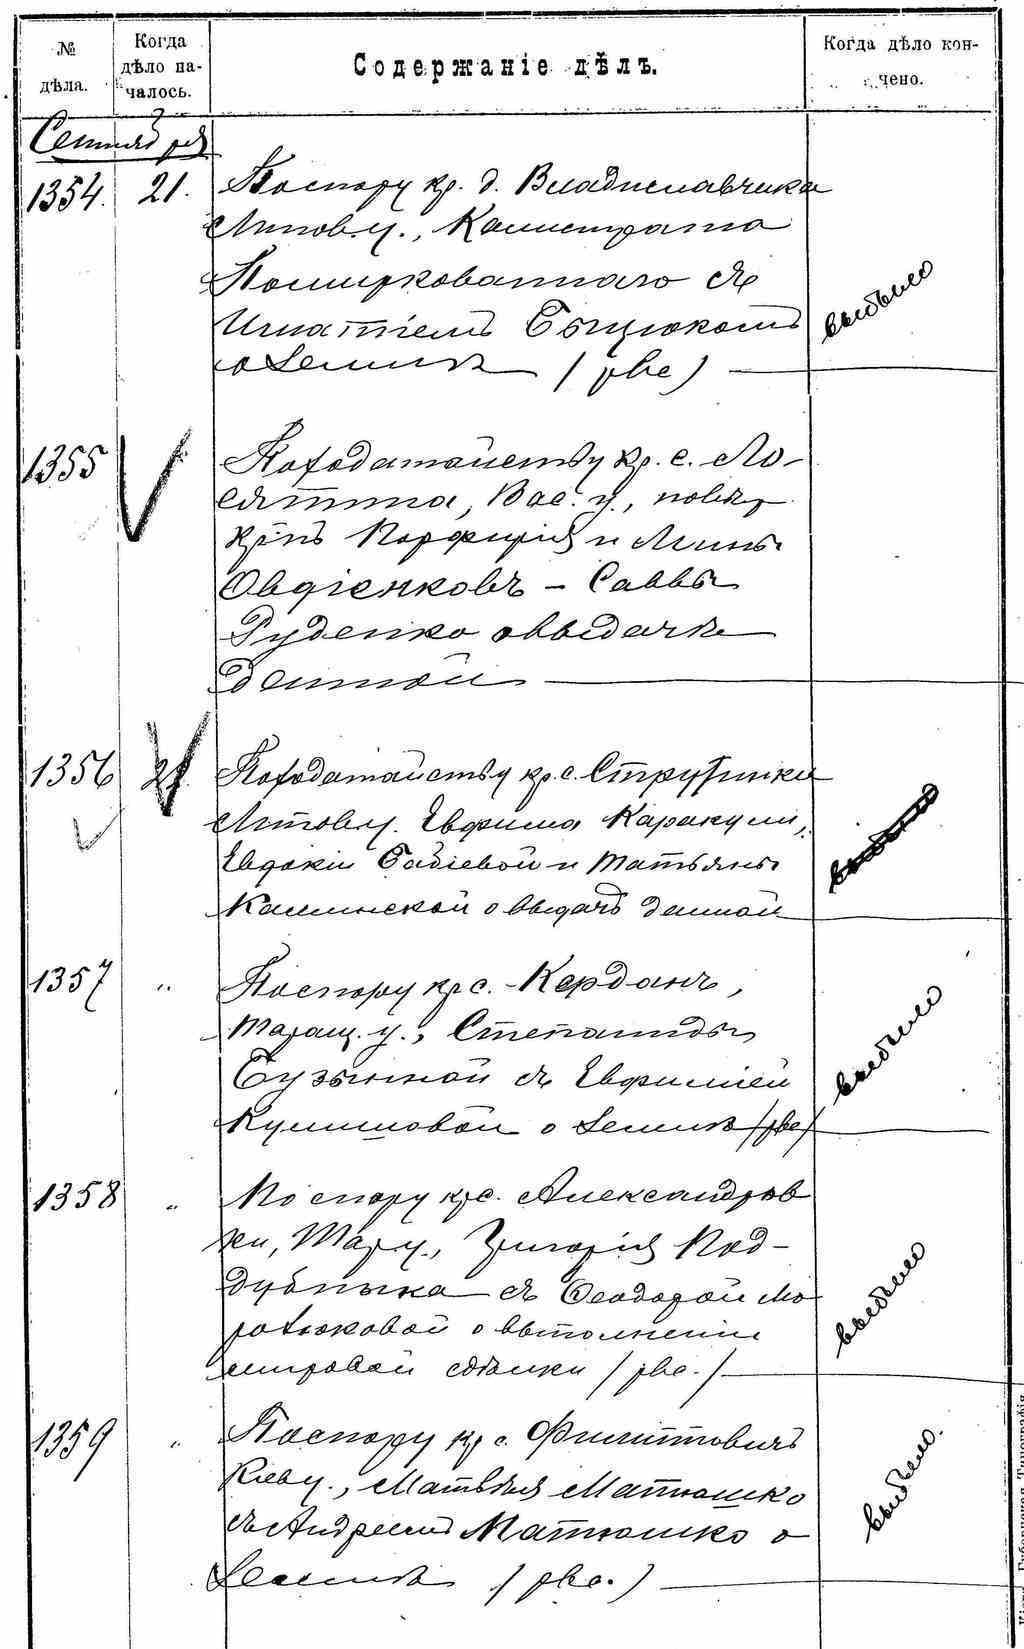 № дѣла.
Когда дѣло на-
чалось.
Содержаніе дѣлъ.
Когда дѣло кон-
чено.
Сентября
1354. 21. По спору кр. д. Владиславчика
Липов. у., Калистрата
с
Игнатіемъ
о землѣ (рве)
выбыло
1355 По ходатайству кр. с. Ло-
сятина, Вас. у., повѣр.
кр-нъ Порфирія и Мины
Овдіенковъ - Саввы
Руденко о выдачѣ
данной
1356 21. По ходатайству кр. с.
Липов. у. Евфима Каракули,
Евдокіи Бабіевой и Татьяны
Калинской о выдачѣ данной
выбыло
1357 " По спору кр. с. Кердань,
Таращ. у., Степаниды
съ Евфиміей
о землѣ (рве)
выбыло
1358 " По спору кр. с. Александров
ки, Тар. у., Григорія Под-
дубняка съ Ѳеодорой Мо
о выполненіи
мировой сдѣлки (рве.)
выбыло
1359 " По спору кр. с. Филипповичъ
Кіев. у., Матвѣя Матюшко
съ Андреемъ Матюшко о
землѣ (рве.)
выбыло.
Кіевъ. Губернская Типографія